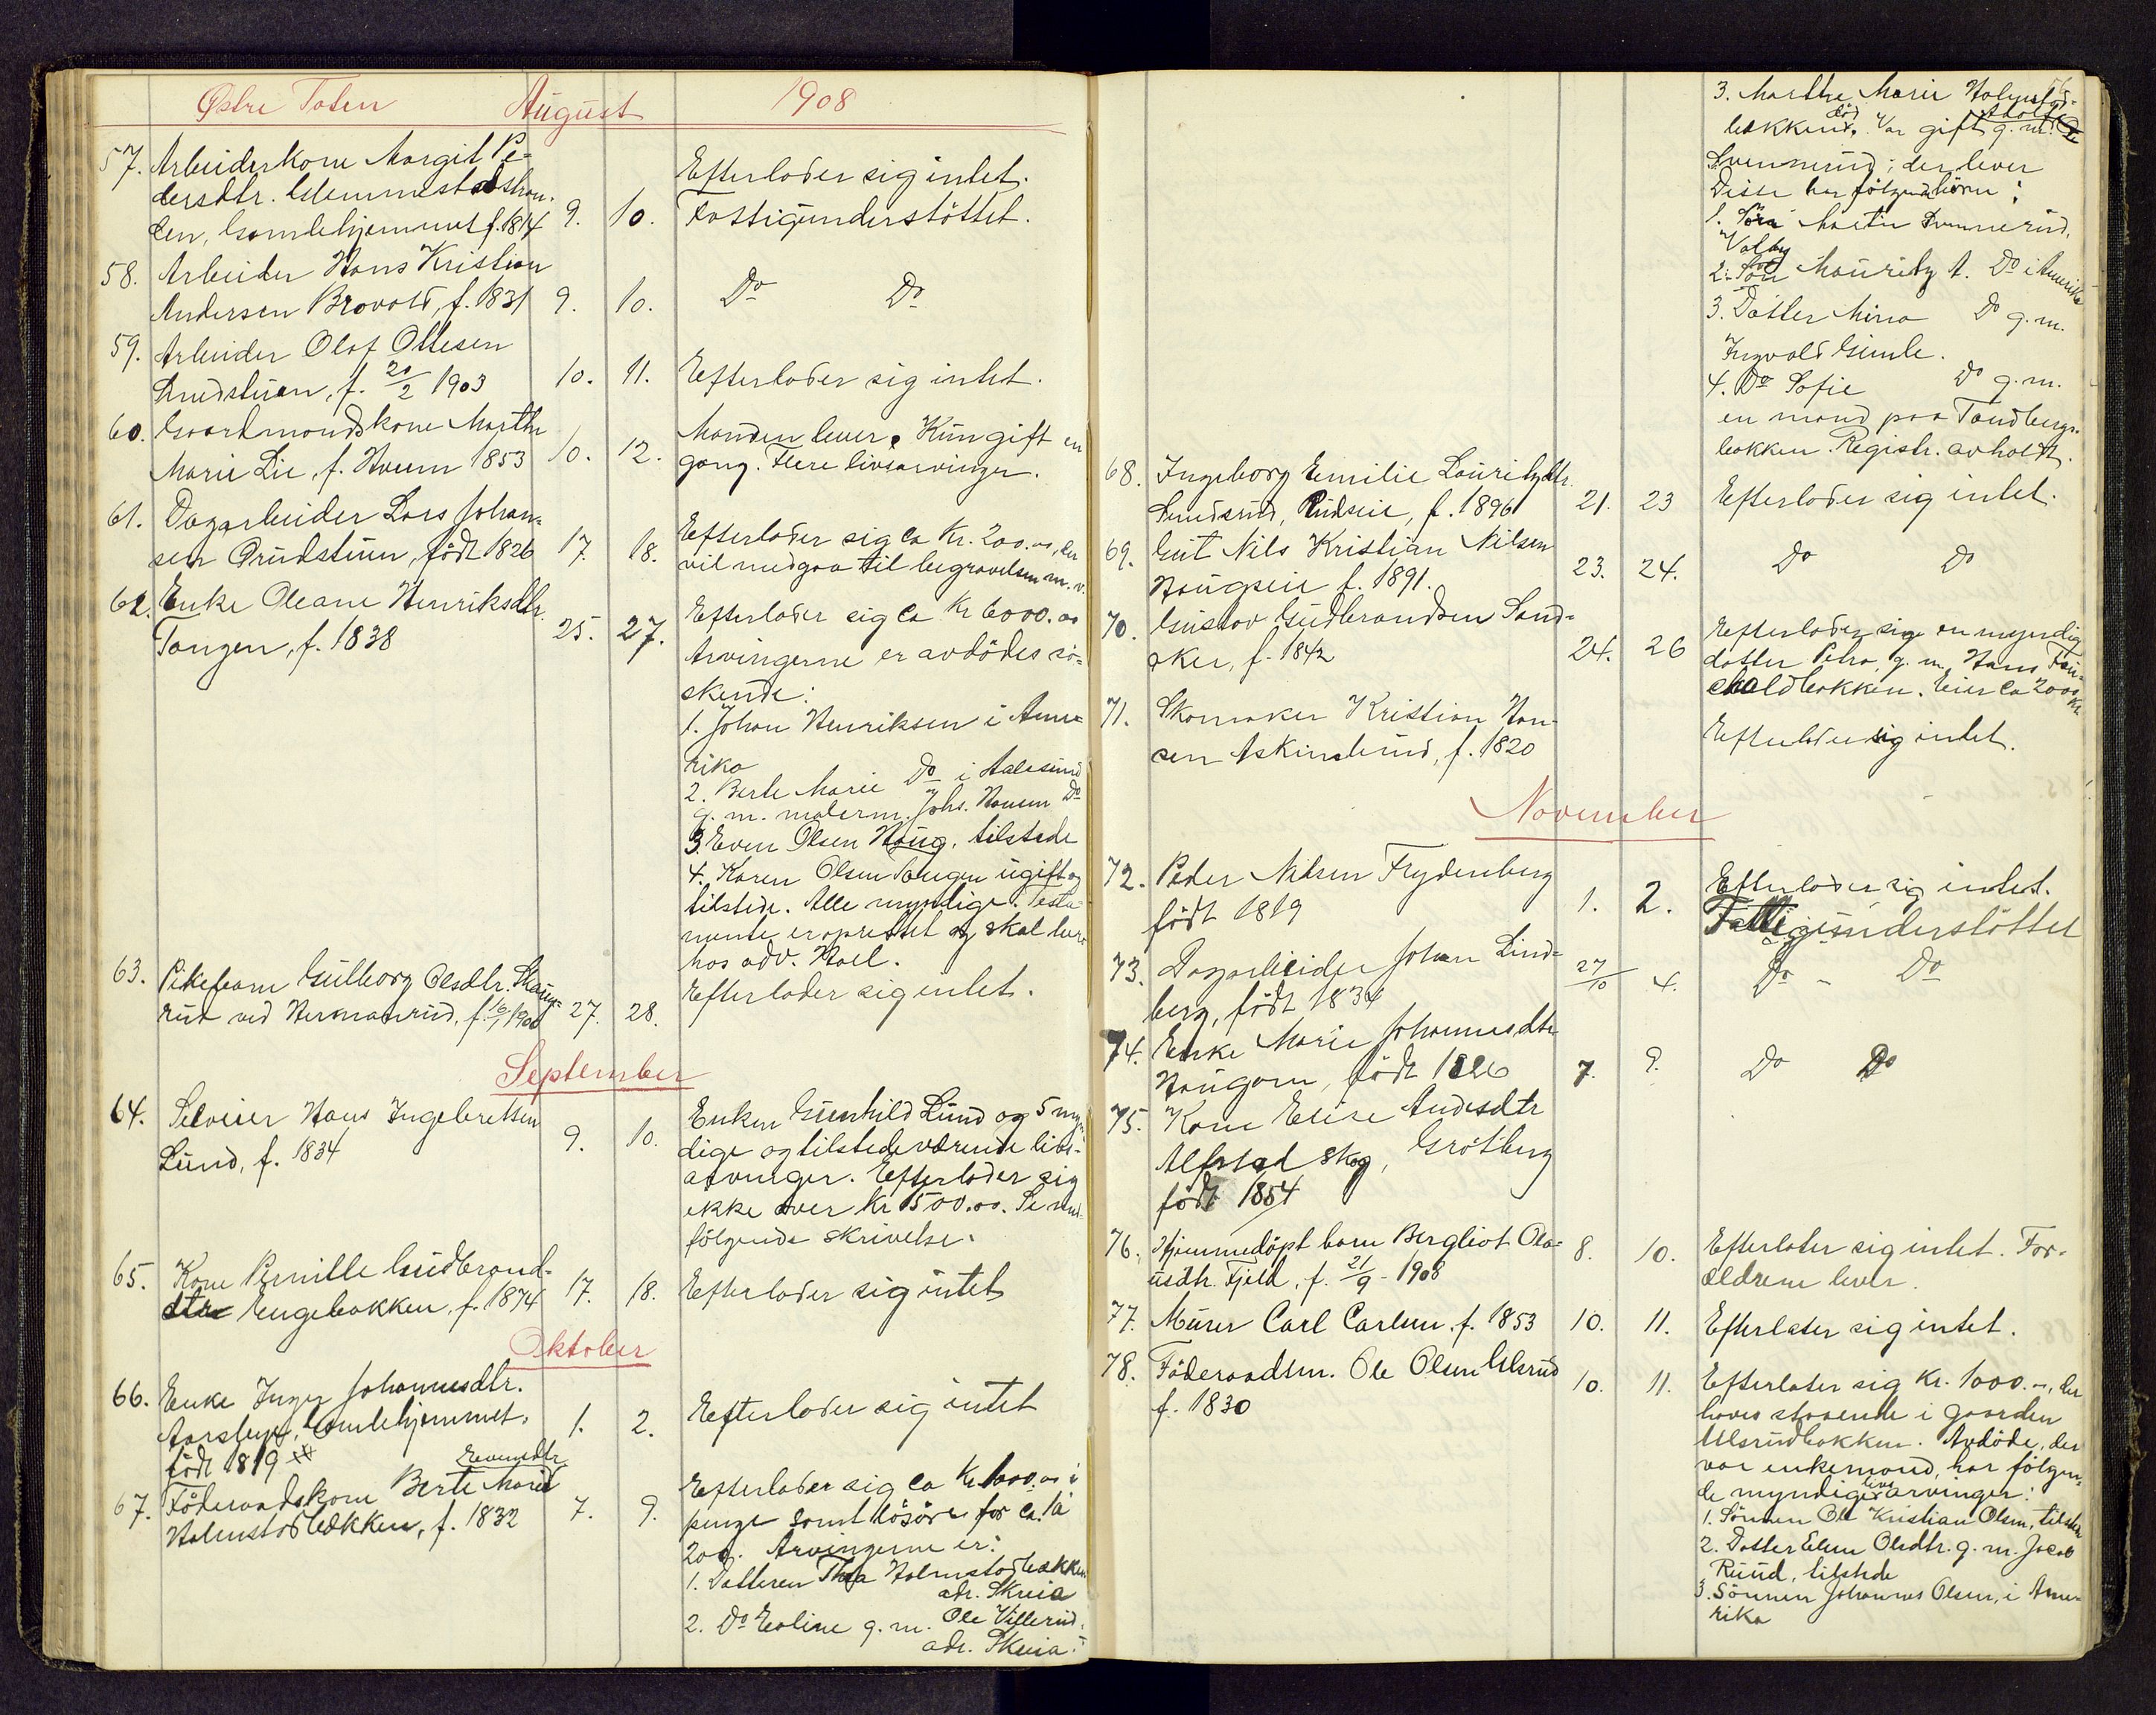 Østre Toten August 1908
57. Arbeiderkone Margit Pe-
dersdtr.
den, Gamlehjemmet f. 1814 9. 10.
Efterlader sig intet.
Fattigunderstöttet.
58. Arbeider Hans Kristian
Andersen Brovold, f. 1831 9. 10. Do Do
59. Arbeider Olaf Ottesen
f. 20/2 1903 10. 11. Efterlader sig intet.
60. Gaardmandskone Marthe
Marie Lie, f. Hveem 1853 10. 12.
Manden lever. Kun gift en
gang. Flere livsarvinger.
61. Dagarbeider Lars Johan-
sen Prudstuen, født 1826 17. 18.
Efterlader sig ca Kr. 200.00, der
vil medgaa til begravelsen m.v.
62. Enke Oleane Henriksdtr.
Tangen, f. 1838 25. 27.
Efterlader sig ca Kr 6000.00
Arvingerne er avdödes sö-
skende:
1. Johan Henriksen i Ame-
rika
2. Berte Marie Do i Aalesund
g. m. malerm. Johs. Hansen Do
3. Even Olsen Haug, tilstede
4. Karen Olsen Tangen ugift og
tilstede. Alle myndige. Testa-
mente er oprettet og skal bero
hos adv. Hoel.
63. Pikebarn Gulborg Olsdtr. Skaug-
rud ved Hermanrud, f. 16/1 1900 27. 28.
Efterlader sig intet.
September
64. Selveier Hans Ingebretsen
Lund, f. 1834 9. 10.
Enken Gunhild Lund og 5 myn-
dige og tilstedeværende livs-
arvinger. Efterlader sig
ikke over Kr 1500.00. Se med-
fölgende skrivelse.
65. Kone Pernille Gudbrands-
dtr Engebakken, f. 1874 17. 18. Efterlader sig intet
Oktober
66. Enke Inger Johannesdtr.
Gamlehjemmet,
født 1819 1. 2. Efterlader sig intet
67. Föderaadskone Berte Marie Evensdtr
Holmstadbakken, f. 1832 7. 9.
Efterlader sig ca Kr 1000.00 i
penge samt lösöre for ca. kr
200. Arvingerne er:
1. Datteren Thea Holmstadbakken
adr. Skreia
2. Do Eoline g. m. Ole Villerud,
adr. Skreia.
3. Marthe Marie Holmstad-
bakken, död. Var gift g. m.
Svennerud; der lever
Disse har følgende börn:
1. Sön Martin Svennerud,
Valby
2. Sön Mauritz A. Do i Amerika
3. Datter Mina Do g. m.
Ingvald Gimle.
4. Do Sofie Do g. m.
en mand paa Tandbergs-
bakken. Registr. avholdt.
68. Ingeborg Emilie Lauritzdtr.
f. 1896 21. 23 Efterlader sig intet.
69. Gut Nils Kristian Nilsen
Haugseie f. 1891. 23. 24. Do Do
70. Gustav Gudbrandsen Sand-
aker, f. 1842 24. 26
Efterlader sig en myndig
datter Petra, g. m. Hans Fau-
chaldbakken. Eier ca 2000 Kr.
71. Skomaker Kristian Han-
sen Askimlund, f. 1820
Efterlader sig intet.
November
72. Peder Nilsen Frydenberg
født 1819 1. 2.
Efterlader sig intet.
Fattigunderstöttet
73. Dagarbeider Johan Lind-
berg, født 1834 27/10 4. Do - Do
74. Enke Marie Johannesdtr
Haugom, født 1826 7. 9. Do Do
75. Kone Elise Andersdtr
Alfstad skog, Grötberg
født 1854
76. Hjemmedöpt barn Bergliot Ola-
usdtr. Fjeld, f. 21/9 - 1908 8. 10.
Efterlater sig intet. For-
ældrene lever.
77. Murer Carl Carlsen, f. 1853 10. 11. Efterlater sig intet.
78. Föderaadsm. Ole Olsen Ulsrud
f. 1830 10. 11.
Efterlater sig Kr. 1000.-, der
haves staaende i gaarden
Ulsrudbakken. Avdöde, der
var enkemand, har fölgen-
de myndige livsarvinger:
1. Sönnen Ole Kristian Olsen, tilstede
2. Datter Elen Olsdtr. g. m. Jacob
Ruud, tilstede
3. Sönnen Johannes Olsen, i Ame-
rika